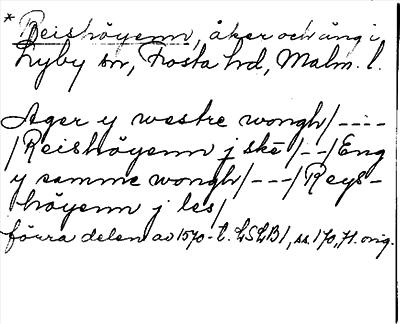 * Reishöyenn, åker och äng i
Lyby sn, Frosta hd, Malm. l.
Ager y westre wongh/----
/Reishöyenn j skè/--/Eng
y samme wongh/---/Reys-
höyenn j les/
förra delen av 1570-t. LSLB1, ss. 170, 71. orig.